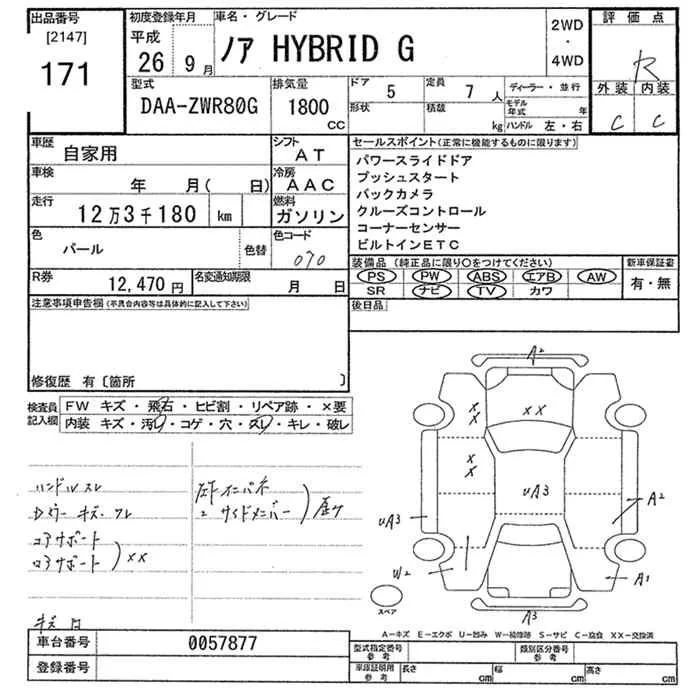 出品番号 初度登録年月 車名・グレード 評価点
[2147] 平成 ノア HYBRID G 2WD
・
171 26 9月 4WD R
型式 排気量 ドア 5 定員 7人 ディーラー・並行 外装 内装
DAA-ZWR80G 1800 形状 積載 モデル年式 年
CC kg ハンドル 左・右 C C
車歴 自家用 シフト AT セールスポイント(正常に機能するものに限ります)
パワースライドドア
車検 年 月( 日) 冷房 AAC プッシュスタート
バックカメラ
走行 12万3千180 km 燃料 ガソリン クルーズコントロール
コーナーセンサー
色 パール 色替 色コード 070 ビルトインETC
装備品(純正品に限り○をつけてください) 新車保証書
R券 12,470円 名変通知期限 月 日 PS PW ABS エアB AW 有・無
SR ナビ TV カワ
注意事項申告欄(不具合内容等は具体的に記入して下さい) 後日品
修復歴 有〔箇所 〕
検査員 FW キズ・飛石・ヒビ割・リペア跡・×要
記入欄 内装 キズ・汚レ・コゲ・穴・スレ・キレ・破レ
A2
XX XX
XX
UA3 A2
UA3
W2 A1
A3
ハンドルスレ
コアサポート
XX
スペア
A-キズ E-エクボ U-凹み W-補修跡 S-サビ C-腐食 XX-交換済
車台番号 0057877 型式指定番号 参考 類別区分番号 参考
登録番号 車庫証明用 参考 長さ cm 幅 cm 高さ cm